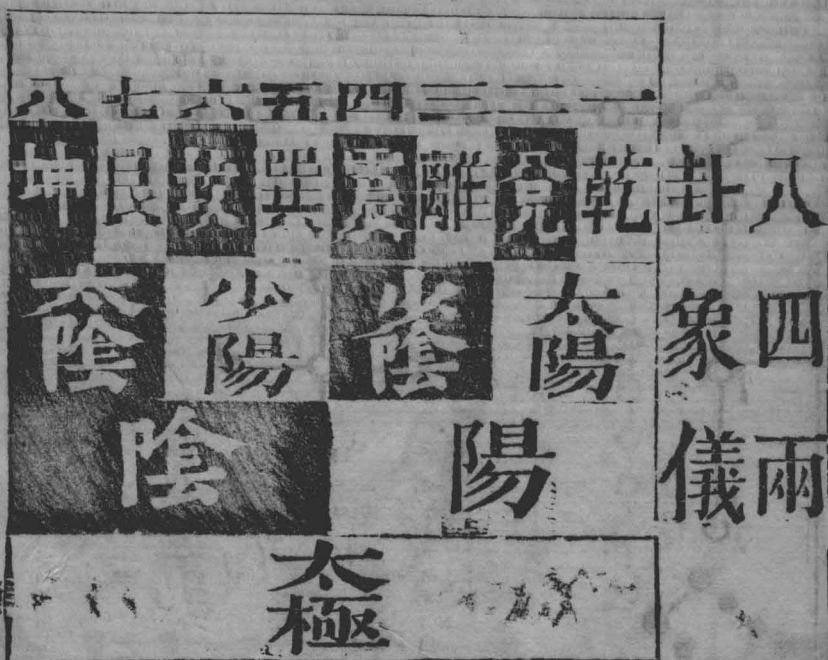 八卦
一 二 三 四 五 六 七 八
乾 兌 離 震 巽 坎 艮 坤
四象
太陽 少陰 少陽 太陰
兩儀
陽 陰
太極